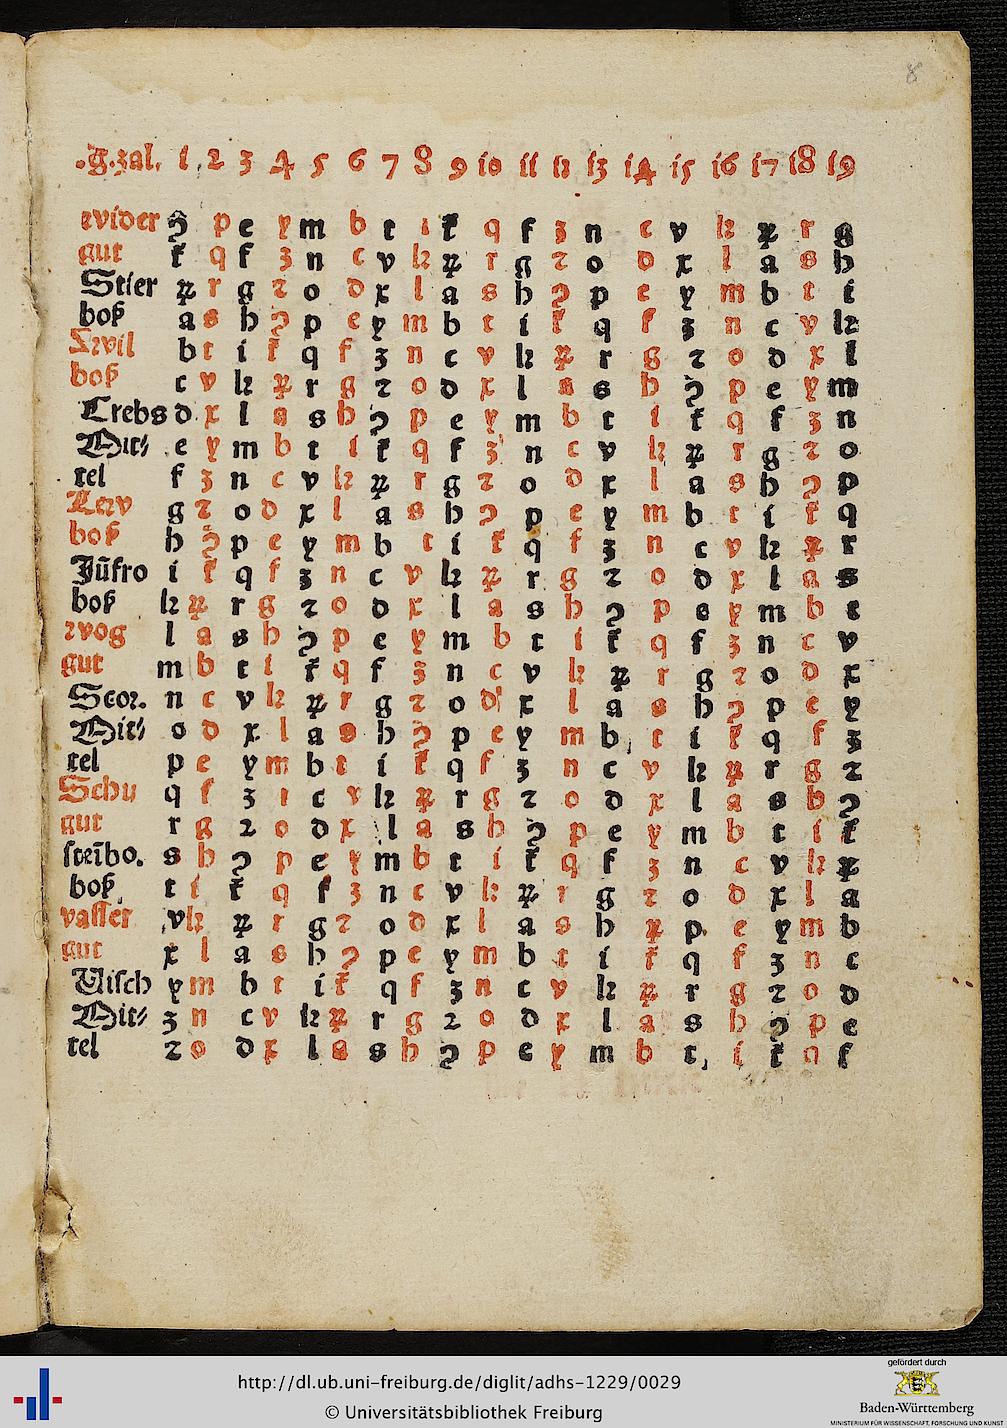 .g.zal. 1 2 3 4 5 6 7 8 9 10 11 12 13 14 15 16 17 18 19
wider ꝯ p e y m b t i ꝉ q f z n c v k ꝝ r g
gut ꝉ q f z n c v k ꝝ r g 2 o d x l a s h
Stier ꝝ r g 2 o d x l a s h ꝯ p e y m b t i
boß a s h ꝯ p e y m b t i ꝉ q f z n c v k
Zwil b t i ꝉ q f z n c v k ꝝ r g 2 o d x l
boß c v k ꝝ r g 2 o d x l a s h ꝯ p e y m
Crebs d x l a s h ꝯ p e y m b t i ꝉ q f z n
Mit⸗ e y m b t i ꝉ q f z n c v k ꝝ r g 2 o
tel f z n c v k ꝝ r g 2 o d x l a s h ꝯ p
Lew g 2 o d x l a s h ꝯ p e y m b t i ꝉ q
boß h ꝯ p e y m b t i ꝉ q f z n c v k ꝝ r
Jūfro i ꝉ q f z n c v k ꝝ r g 2 o d x l a s
boß k ꝝ r g 2 o d x l a s h ꝯ p e y m b t
wog l a s h ꝯ p e y m b t i ꝉ q f z n c v
gut m b t i ꝉ q f z n c v k ꝝ r g 2 o d x
Scor. n c v k ꝝ r g 2 o d x l a s h ꝯ p e y
Mit⸗ o d x l a s h ꝯ p e y m b t i ꝉ q f z
tel p e y m b t i ꝉ q f z n c v k ꝝ r g 2
Schu q f z i c v k ꝝ r g 2 o d x l a s h ꝯ
gut r g 2 o d x l a s h ꝯ p e y m b t i ꝉ
steībo. s h ꝯ p e y m b t i ꝉ q f z n c v k ꝝ
boß t i ꝉ q f z n c v k ꝝ r g 2 o d x l a
vasser v k ꝝ r g 2 o d x l a s h ꝝ p e y m b
gut x l a s h ꝯ p e y m b t i ꝉ q f z n c
Visch y m b t i ꝉ q f z n c v k ꝝ r g 2 o d
Mit⸗ z n c v k ꝝ r g 2 o d x l a s h ꝯ p e
tel 2 o d x l a s h ꝯ p e y m b t i ꝉ q f
8
http://dl.ub.uni-freiburg.de/diglit/adhs-1229/0029
© Universitätsbibliothek Freiburg
gefördert durch
Baden-Württemberg
MINISTERIUM FÜR WISSENSCHAFT, FORSCHUNG UND KUNST